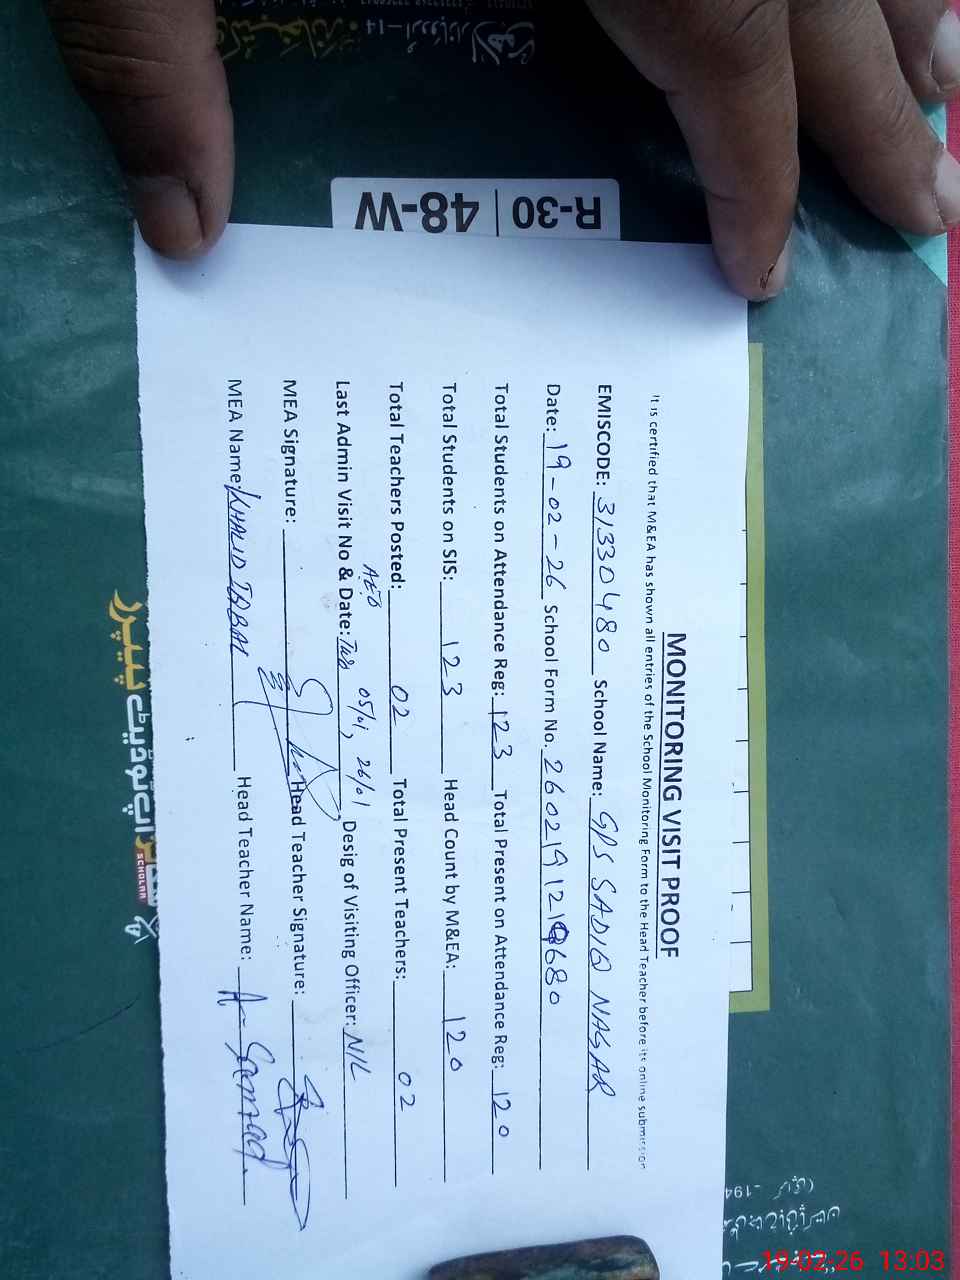 MONITORING VISIT PROOF
It is certified that M&EA has shown all entries of the School Monitoring Form to the Head Teacher before its online submission
EMISCODE: 31330480 School Name: GPS SADIQ NAGAR
Date: 19-02-26 School Form No. 260219121680
Total Students on Attendance Reg: 123 Total Present on Attendance Reg: 120
Total Students on SIS: 123 Head Count by M&EA: 120
Total Teachers Posted: 02 Total Present Teachers: 02
AEO
Last Admin Visit No & Date: Two 05/01, 26/01 Desig of Visiting Officer: NIL
MEA Signature: Head Teacher Signature:
MEA Name: KHALID IQBAL Head Teacher Name: A. Samad.
R-30 | 48-W
اپ ٹوڈیٹ پیپرز
SCHOLAR
19-02-26 13:03